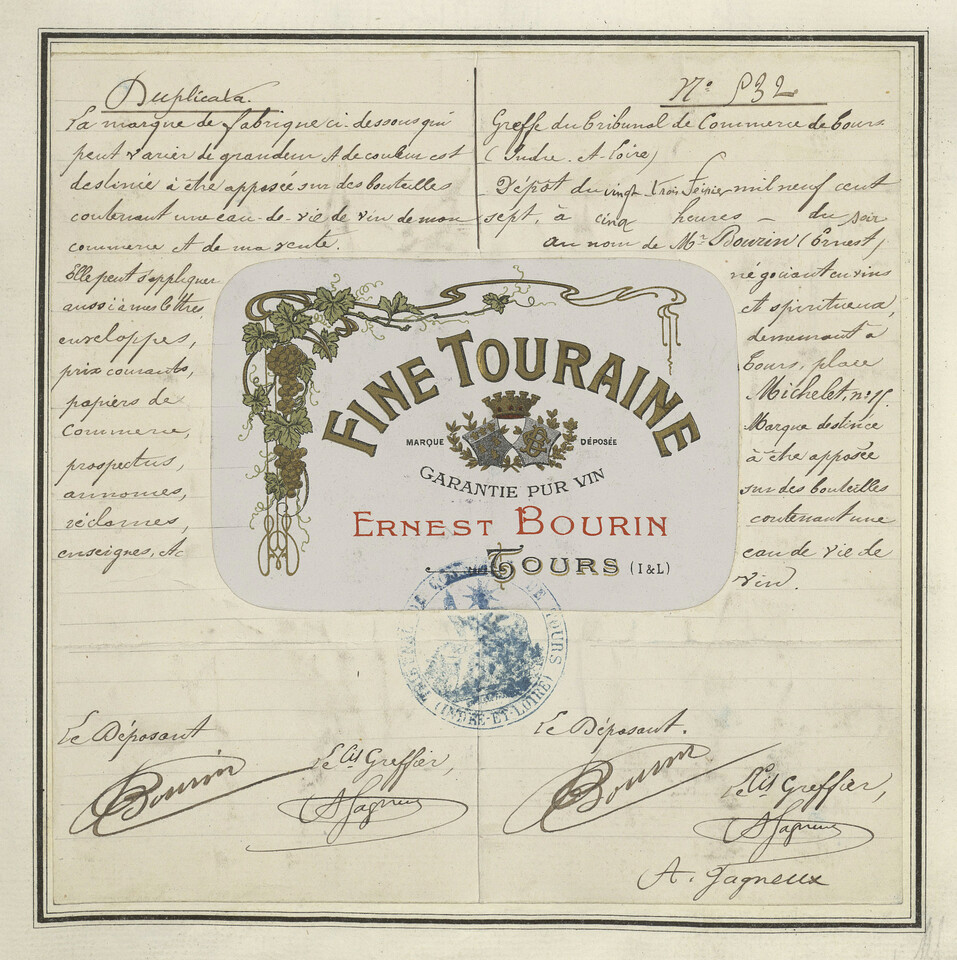 Duplicata.
La marque de fabrique ci-dessous qui
peut varier de grandeur & de couleur est
destinée à être apposée sur des bouteilles
contenant une eau-de-vie de vin de mon
commerce & de ma vente.
Elle peut s'appliquer
aussi à mes lettres,
enveloppes,
prix courants,
papiers de
commerce,
prospectus,
annonces,
réclames,
enseignes, &c
N° 532
Greffe du Tribunal de Commerce de Tours
(Indre-&-Loire)
Dépôt du vingt trois Février mil neuf cent
sept, à cinq heures - du soir
au nom de Mr Bourin (Ernest)
négociant en vins
et spiritueux,
demeurant à
Tours, place
Michelet, n°
Marque destinée
à être apposée
sur des bouteilles
contenant une
eau de vie de
vin.
FINE TOURAINE
MARQUE DÉPOSÉE
GARANTIE PUR VIN
ERNEST BOURIN
TOURS (I&L)
TRIBUNAL DE COMMERCE DE TOURS
(INDRE-ET-LOIRE)
Le Déposant
Bourin
Le Cis Greffier,
A Gagneux
Le Déposant.
Bourin
Le Cis Greffier,
A Gagneux
A. Gagneux